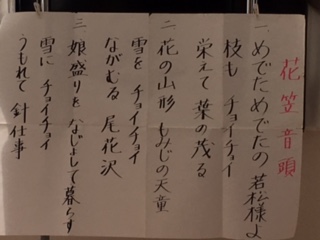 花笠音頭
一、めでためでたの 若松様よ
枝も チョイチョイ
栄えて 葉の茂る
二、花の山形 もみじの天童
雪を チョイチョイ
ながむる 尾花沢
三、娘盛りを なじょして暮らす
雪に チョイチョイ
うもれて 針仕事